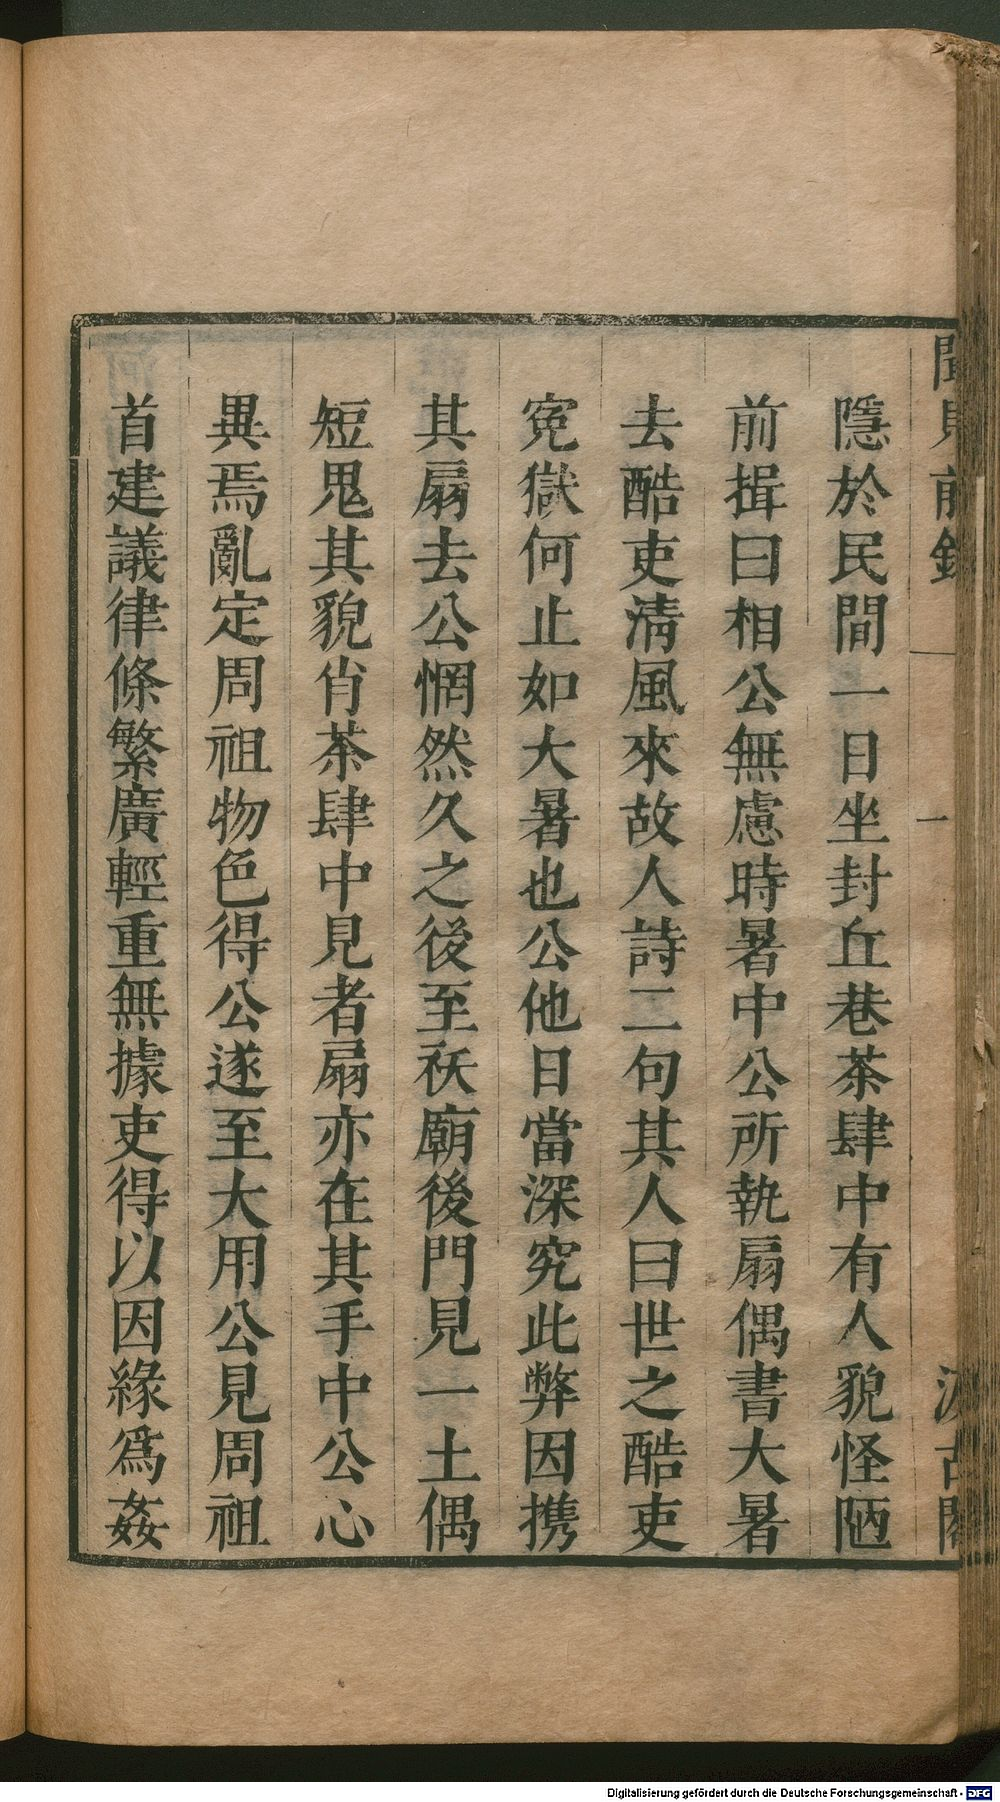 聞見前錄
一
汲古閣
隱於民間一日坐封丘巷茶肆中有人貌怪陋
前揖曰相公無慮時暑中公所執扇偶書大暑
去酷吏清風來故人詩二句其人曰世之酷吏
寃獄何止如大暑也公他日當深究此弊因携
其扇去公惘然久之後至祅廟後門見一土偶
短鬼其貌肖茶肆中見者扇亦在其手中公心
異焉亂定周祖物色得公遂至大用公見周祖
首建議律條繁廣輕重無據吏得以因緣爲姦
Digitalisierung gefördert durch die Deutsche Forschungsgemeinschaft - DFG